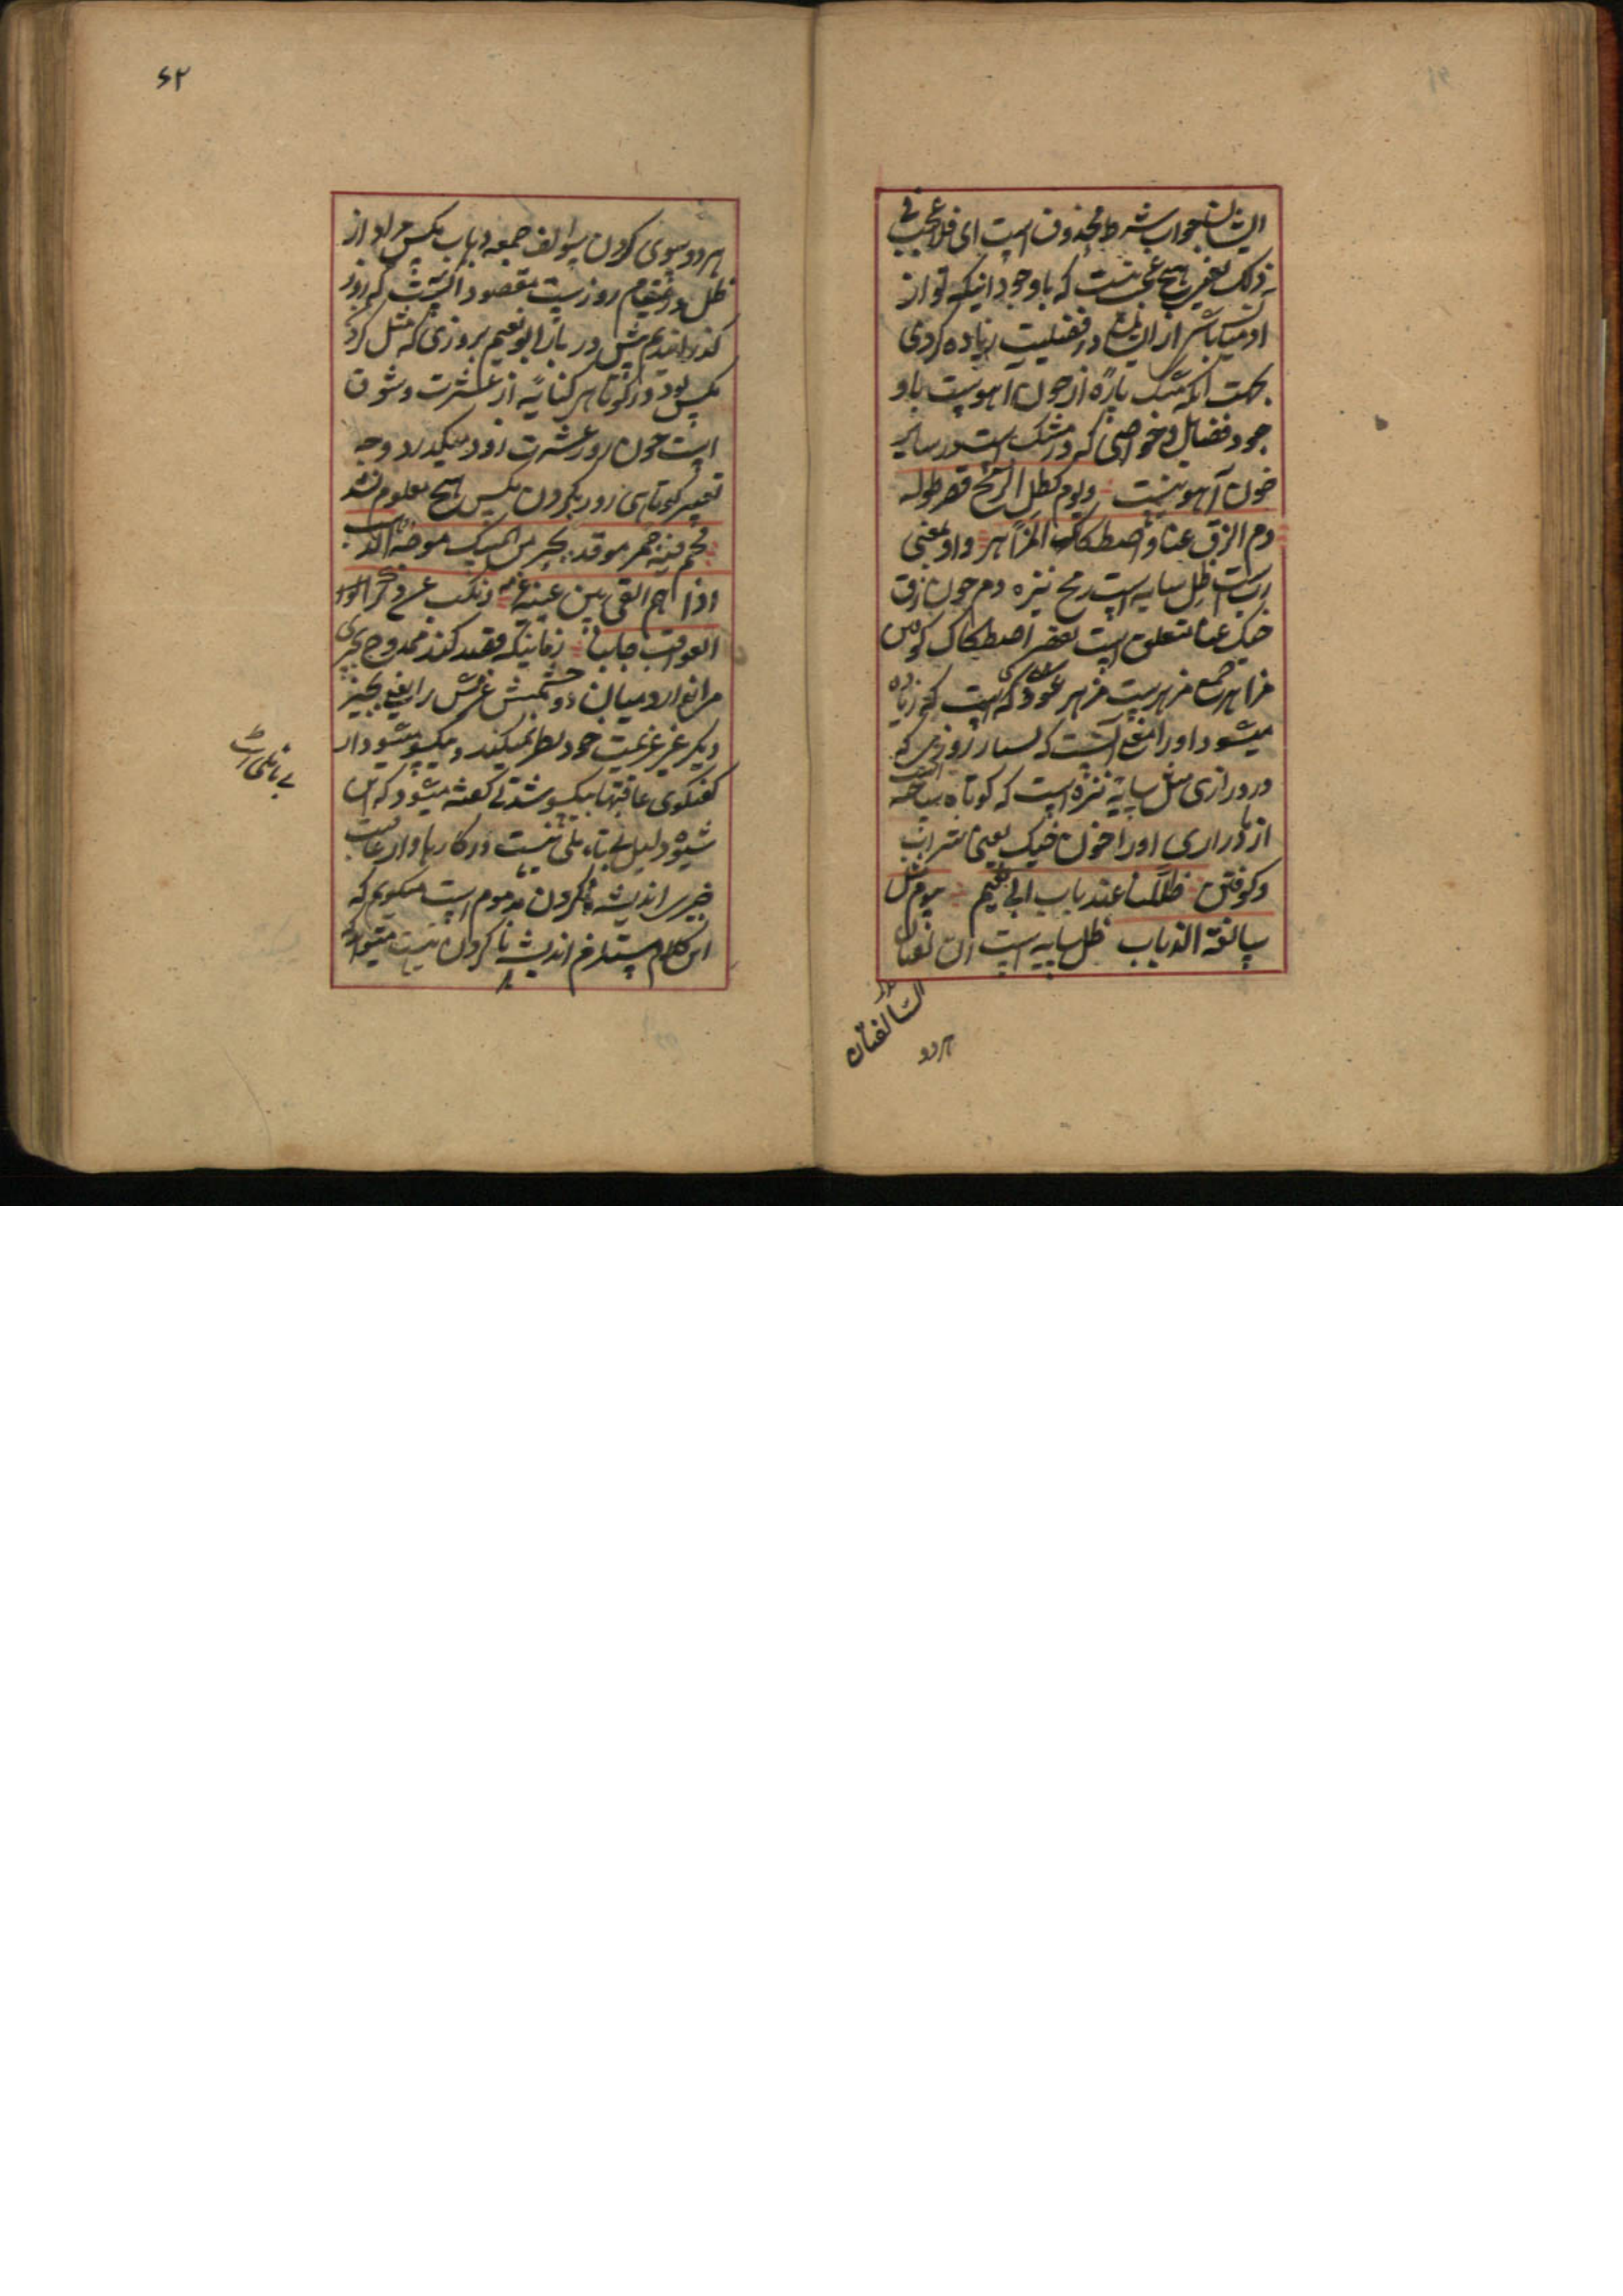 ایشان جواب شرط محذوف است ای فلا عجب فی
ذلک یعنی هیچ عجب نیست که باوجود اینکه تو از
ادمیان باشی از ایشان در فضیلت زیاده کردی
بجهت انکه مشک پارهٔ از خون اهوست باو
جود فضایل و خواصی که در مشک است در سایر
خون آهو نیست ویوم کظل الرمح قصر طوله
دم الزق عنا واصطکاک المزاهر واو بمعنی
رب است ظل سایه است رمح نیزه دم خون زق
خیک عنا متعلق است بقصر اصطکاک کوفتن
مزاهر جمع مزهرست مزهر عود
میشود اورا معنی آنست که بسیار روزی که
در درازی مثل سایهٔ نیزه است که کوتاه ساخته است
از ما درازی اورا خون خیک یعنی شراب
وکوفتن ظللنا عند باب ابی نعیم بیوم مثل
سالفة الذباب ظل سایه است
السالفتان
هردو
۶۲
هردو سوی کردن سوالف جمع ذباب مکس مراد از
ظل درینمقام روزست مقصود اینست که روز
کذرانیدیم پیش در بار ابو نعیم بروزی که مثل کردن
مکس بود در کوتاهی کنایه از عشرت وشوق
است چون روز عشرت زود میکذرد و وجه
تعبیر کوتاهی روز بکردن مکس هیچ معلوم نشد
فحم فیه جمر موقد بحر من المسک موجه الذهب
اذا هم القی بین عینیه عزمه ونکب عن ذکر
العواقب جانبا زمانیکه قصد کند ممدوح بچیزی
می اندازد میان دو چشمش عزمش را یعنی بچیز
دیکر غیر عزیمت خود نظر نمیکند ویکسو میشود از
کفتکوی عاقبتها یکسو شدنی کفته میشود که این
شیوه دلیل بی تاملی نیست در کارها واز عاقبت
چیزی اندیشه ناکردن مذموم است میکویم که
این کلام مستلزم اندیشه ناکردن نیست
بی تاملی است